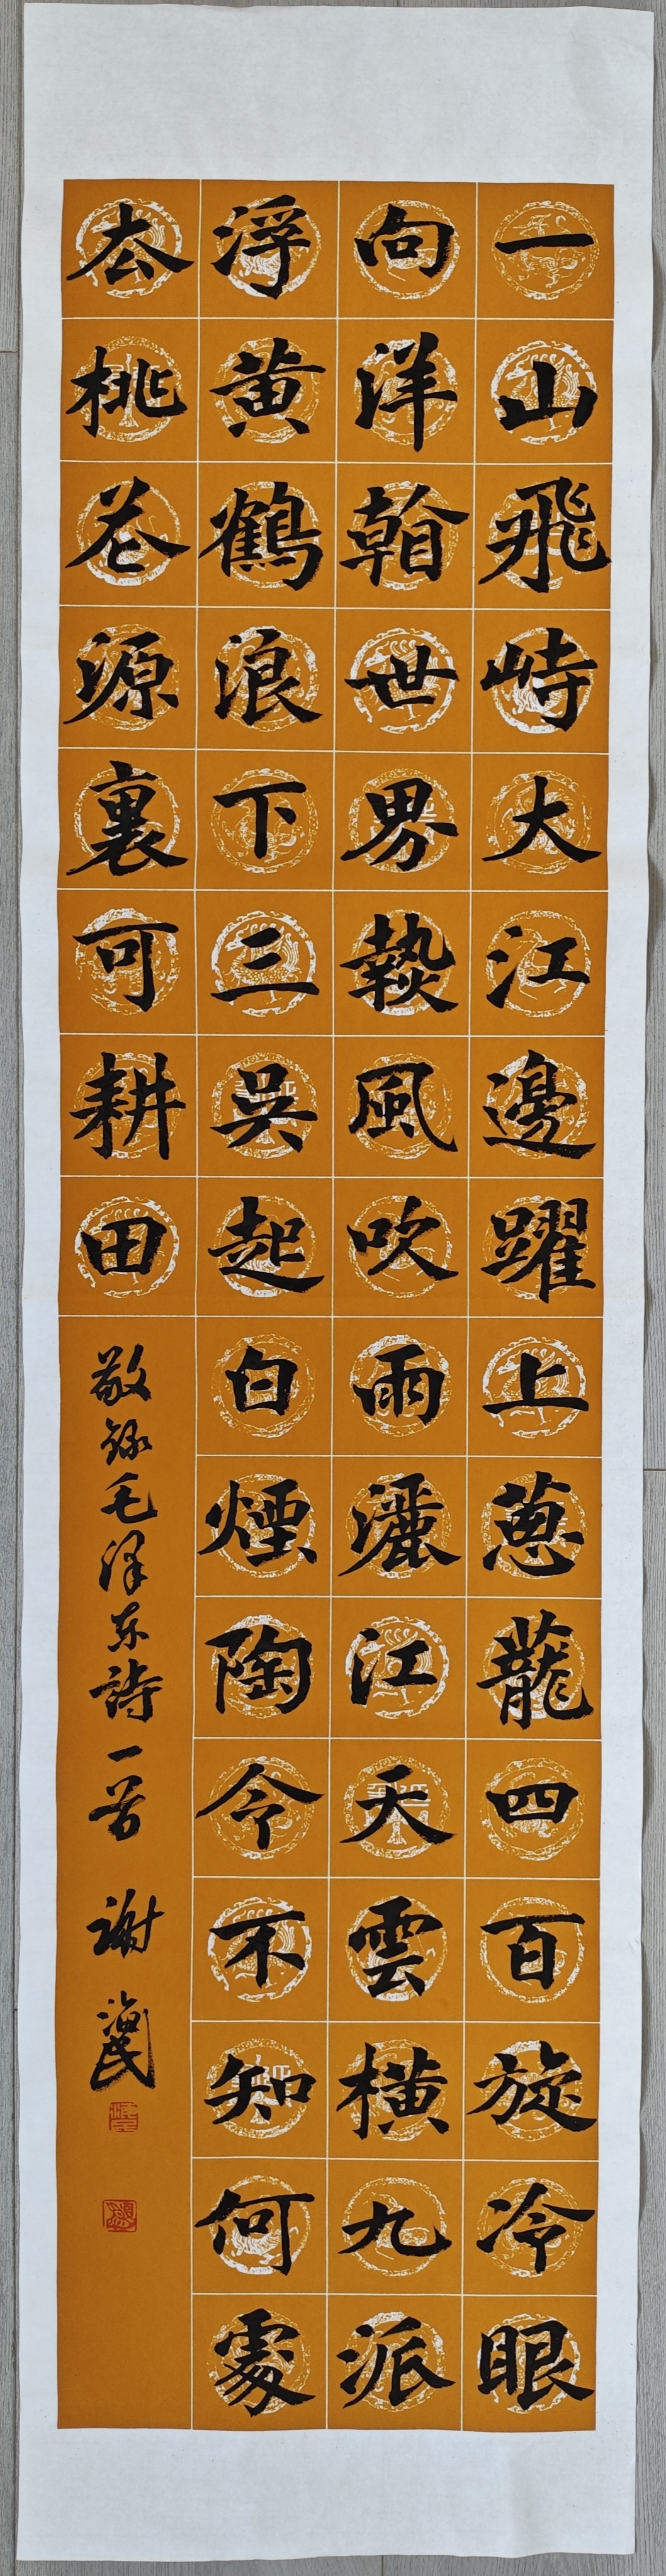 一山飛峙大江邊躍上葱蘢四百旋冷眼
向洋看世界熱風吹雨灑江天雲橫九派
浮黄鶴浪下三吳起白煙陶令不知何處
去桃花源裏可耕田
敬録毛泽东詩一首 謝